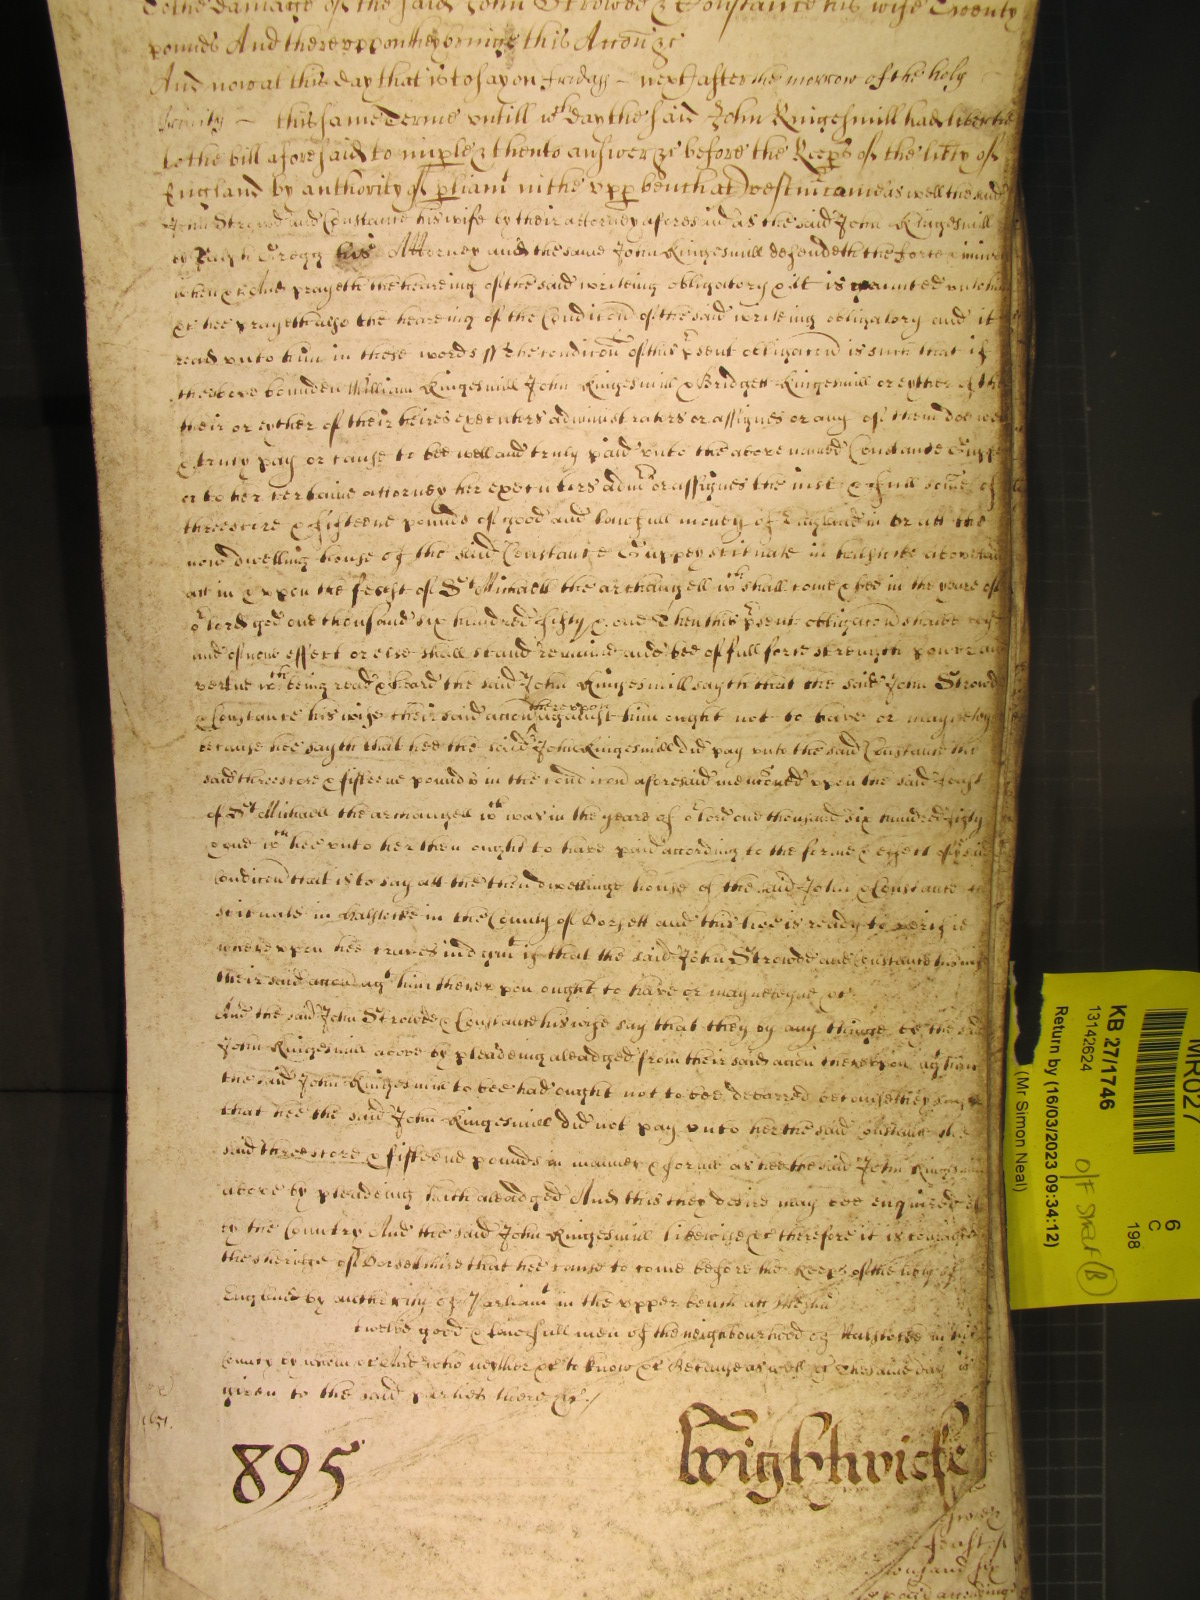 to the damage of the said John Strowde & Constance his wife Twenty
pounds And thereuppon they bringe this Accon &c
And now at this day that is to say on Friday – next after the morrow of the holy
Trinity – this same Terme untill wch day the said John Kingesmill had libertie
to the bill aforesaid to imple & then to answer &c before the Keeps of the libty of
England by authority of pliamt in the upp bench at Westm came as well the said
John Strowde and Constance his wife by their attorney aforesaid as the said John Kingesmill
by Ralph Gregg his Attorney and the same John Kingesmill defendeth the force & iniury
when &c And prayeth the heareing of the said writeing obligatory & it is graunted unto him
&c hee prayeth also the heareing of the Condicon of the said writeing obligatory and it
read unto him in these words ss The condicon of this psent obligacon is such that if
the above bounden William Kingesmill John Kingesmill & Bridgett Kingesmill or eyther of them
their or eyther of their heires executors administrators or assignes or any of them doe well
& truly pay or cause to bee well and truly paid unto the above named Constance Guppey
or to her certaine attorney her executors admrs or assignes the just & full some of
threescore & fifteene pounds of good and lawfull money of England in or att the
now dwelling house of the said Constance Guppey scituate in halstocke aforesaid
att in & upon the feast of St Michaell the archangell wch shall come & bee in the yeare of
or lord god one thousand six hundred fifty & one Then this psent obligacon shalbe voyd
and of none effect or else shall stand remaine and bee of full force strength power and
vertue wch being read & heard the said John Kingesmill sayth that the said John Strowde
& Constance his wife their said accon thereuppon against him ought not to have or mayneteyne
because hee sayth that hee the said John Kingesmill did pay unto the said Constance the
said threescore & fifteene pounds in the condicon aforesaid menconed upon the said feast
of St Michaell the archangell wch was in the yeare of or lord one thousand six hundred fifty
& one wch hee unto her then ought to have paid according to the forme & effect of ye said
Condicon that is to say att the then dwellinge house of the said John & Constance
scituate in halstocke in the County of Dorsett and this hee is ready to verifie
whereupon hee craves iudgmt if that the said John Strowde and Constance his wife
their said accon agt him thereupon ought to have or mayneteyne &c
And the said John Strowde & Constance his wife say that they by any thinge by the said
John Kingesmill above by pleadeing aleadged from their said accon thereupon agt him
the said John Kingesmill to bee had ought not to bee debarred because they say
that hee the said John Kingesmill did not pay unto her the said Constance the
said threescore & fifteene pounds in manner & forme as hee the said John Kingesmill
above by pleadeing hath aleadged And this they desire may bee enquired of
by the Country And the said John Kingesmill likewise &c therefore it is comaunded
the sheriffe of Dorsetshire that hee cause to come before the Keeps of the liberty of
England by authority of Parliamt in the upper bench att Westm
twelve good & lawfull men of the neighbourhood of Halstocke in his
County by whom &c And who neyther &c to know &c Because as well &c The same day is
given to the said parties there &c /
1651.
895
Wightwicke
feast of
thousand six
MR027
KB 27/1746
13142624
6
C
198
Return by (16/03/2023 09:34:12)
(Mr Simon Neal)